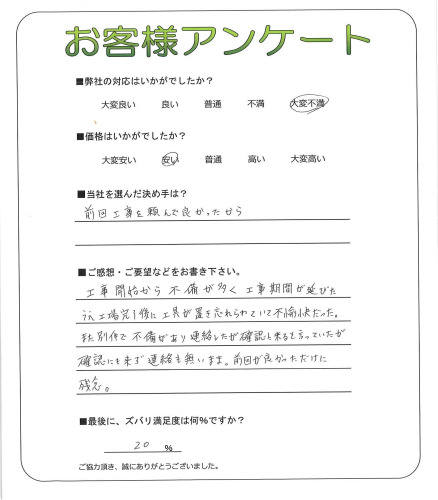 お客様アンケート
■弊社の対応はいかがでしたか？
大変良い 良い 普通 不満 大変不満
■価格はいかがでしたか？
大変安い 安い 普通 高い 大変高い
■当社を選んだ決め手は？
前回工事を頼んで良かったから
■ご感想・ご要望などをお書き下さい。
工事開始から 不備が多く 工事期間が延びた
うえ工場完了後に工具が置き忘れられていて不愉快だった。
また別件で 不備があり連絡したが確認に来ると言っていたが
確認にも来ず連絡も無いまま。前回が良かっただけに
残念。
■最後に、ズバリ満足度は何%ですか？
20 %
ご協力頂き、誠にありがとうございました。